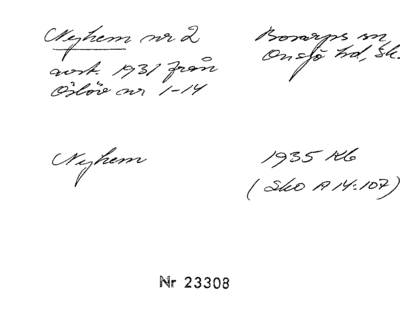 Nyhem nr 2
Bosarps sn,
avst. 1931 från
Onsjö hd, Sk.
Öslöv nr 1-14
Nyhem
1935 Kb
(Sko A 14:107)
Nr 23308